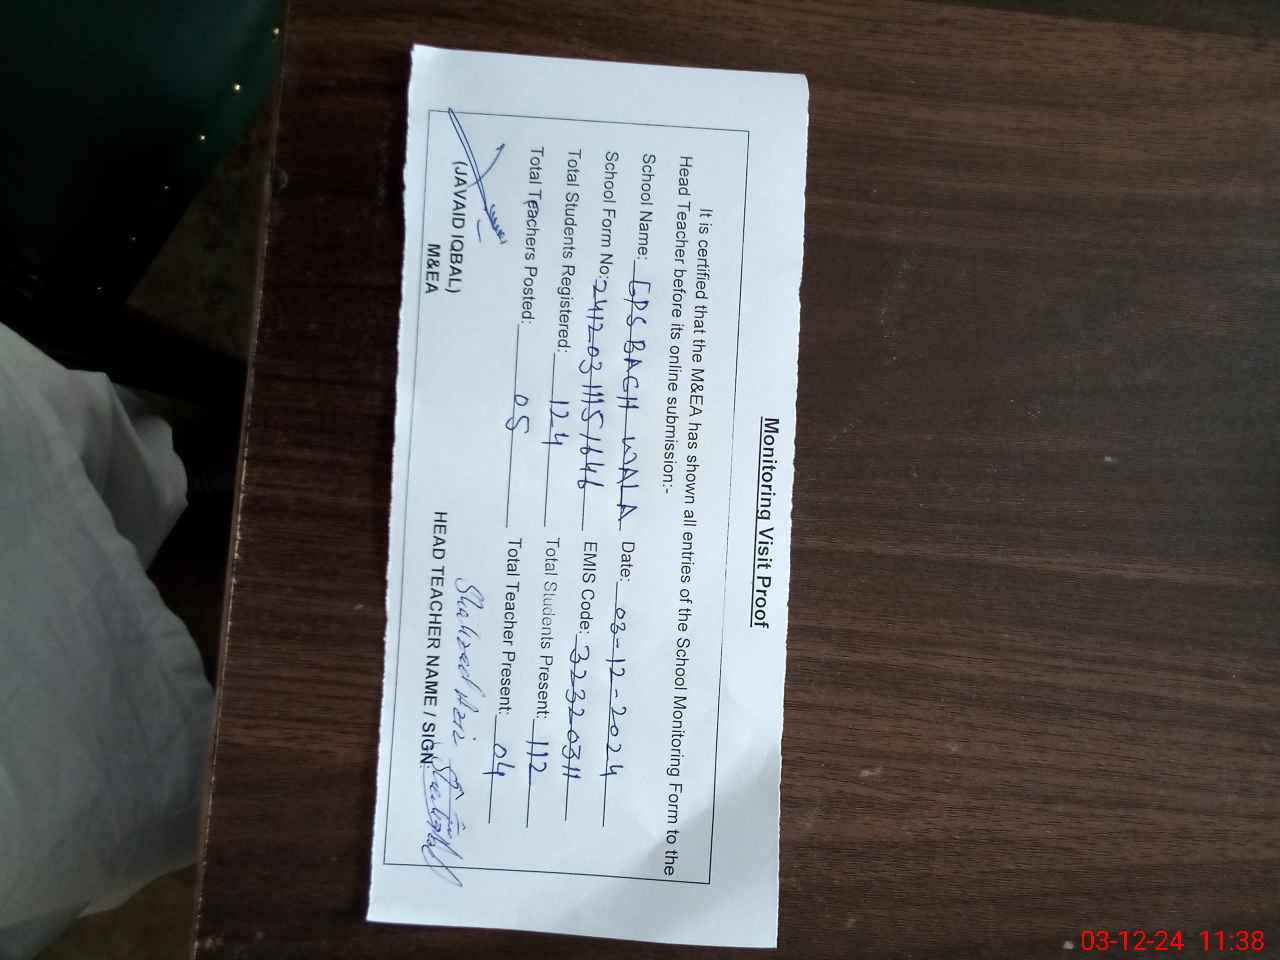 Monitoring Visit Proof
It is certified that the M&EA has shown all entries of the School Monitoring Form to the
Head Teacher before its online submission:-
School Name: GPS BAGH WALA Date: 03-12-2024
School Form No: 24120311151646 EMIS Code: 32320311
Total Students Registered: 124 Total Students Present: 112
Total Teachers Posted: 05 Total Teacher Present: 04
(JAVAID IQBAL)
M&EA
HEAD TEACHER NAME / SIGN:
03-12-24 11:38